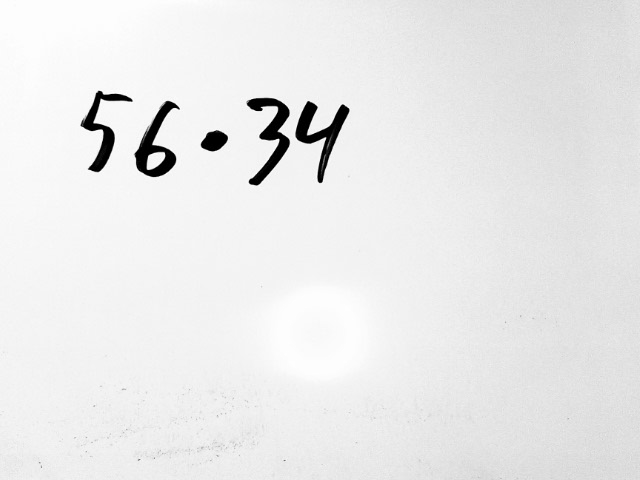 56·34